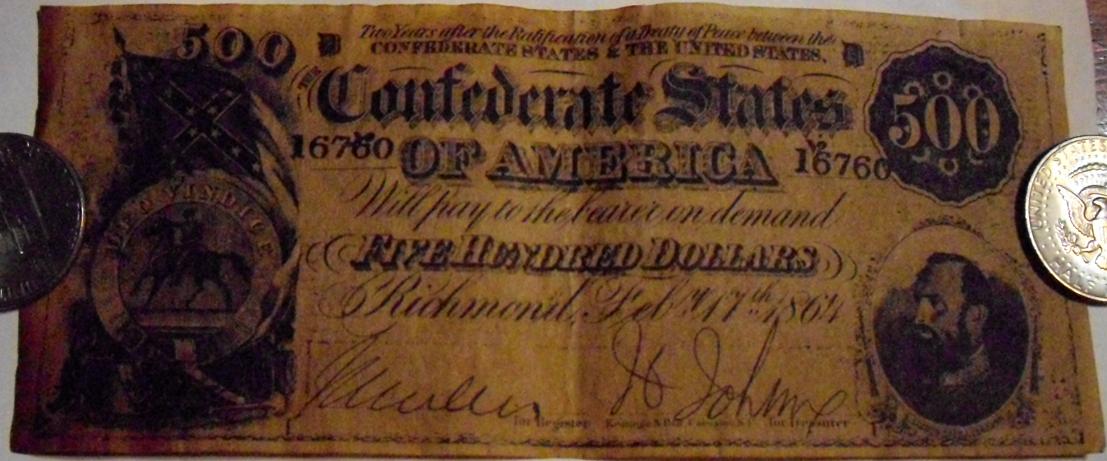 500
Two Years after the Ratification of a Treaty of Peace between the
CONFEDERATE STATES & THE UNITED STATES,
Confederate States
500
16760 OF AMERICA 16760
Will pay to the bearer on demand
DEO VINDICE
FIVE HUNDRED DOLLARS
Richmond, Feby 17th 1864
H Johnne
for Register for Treasurer
UNITED STATES